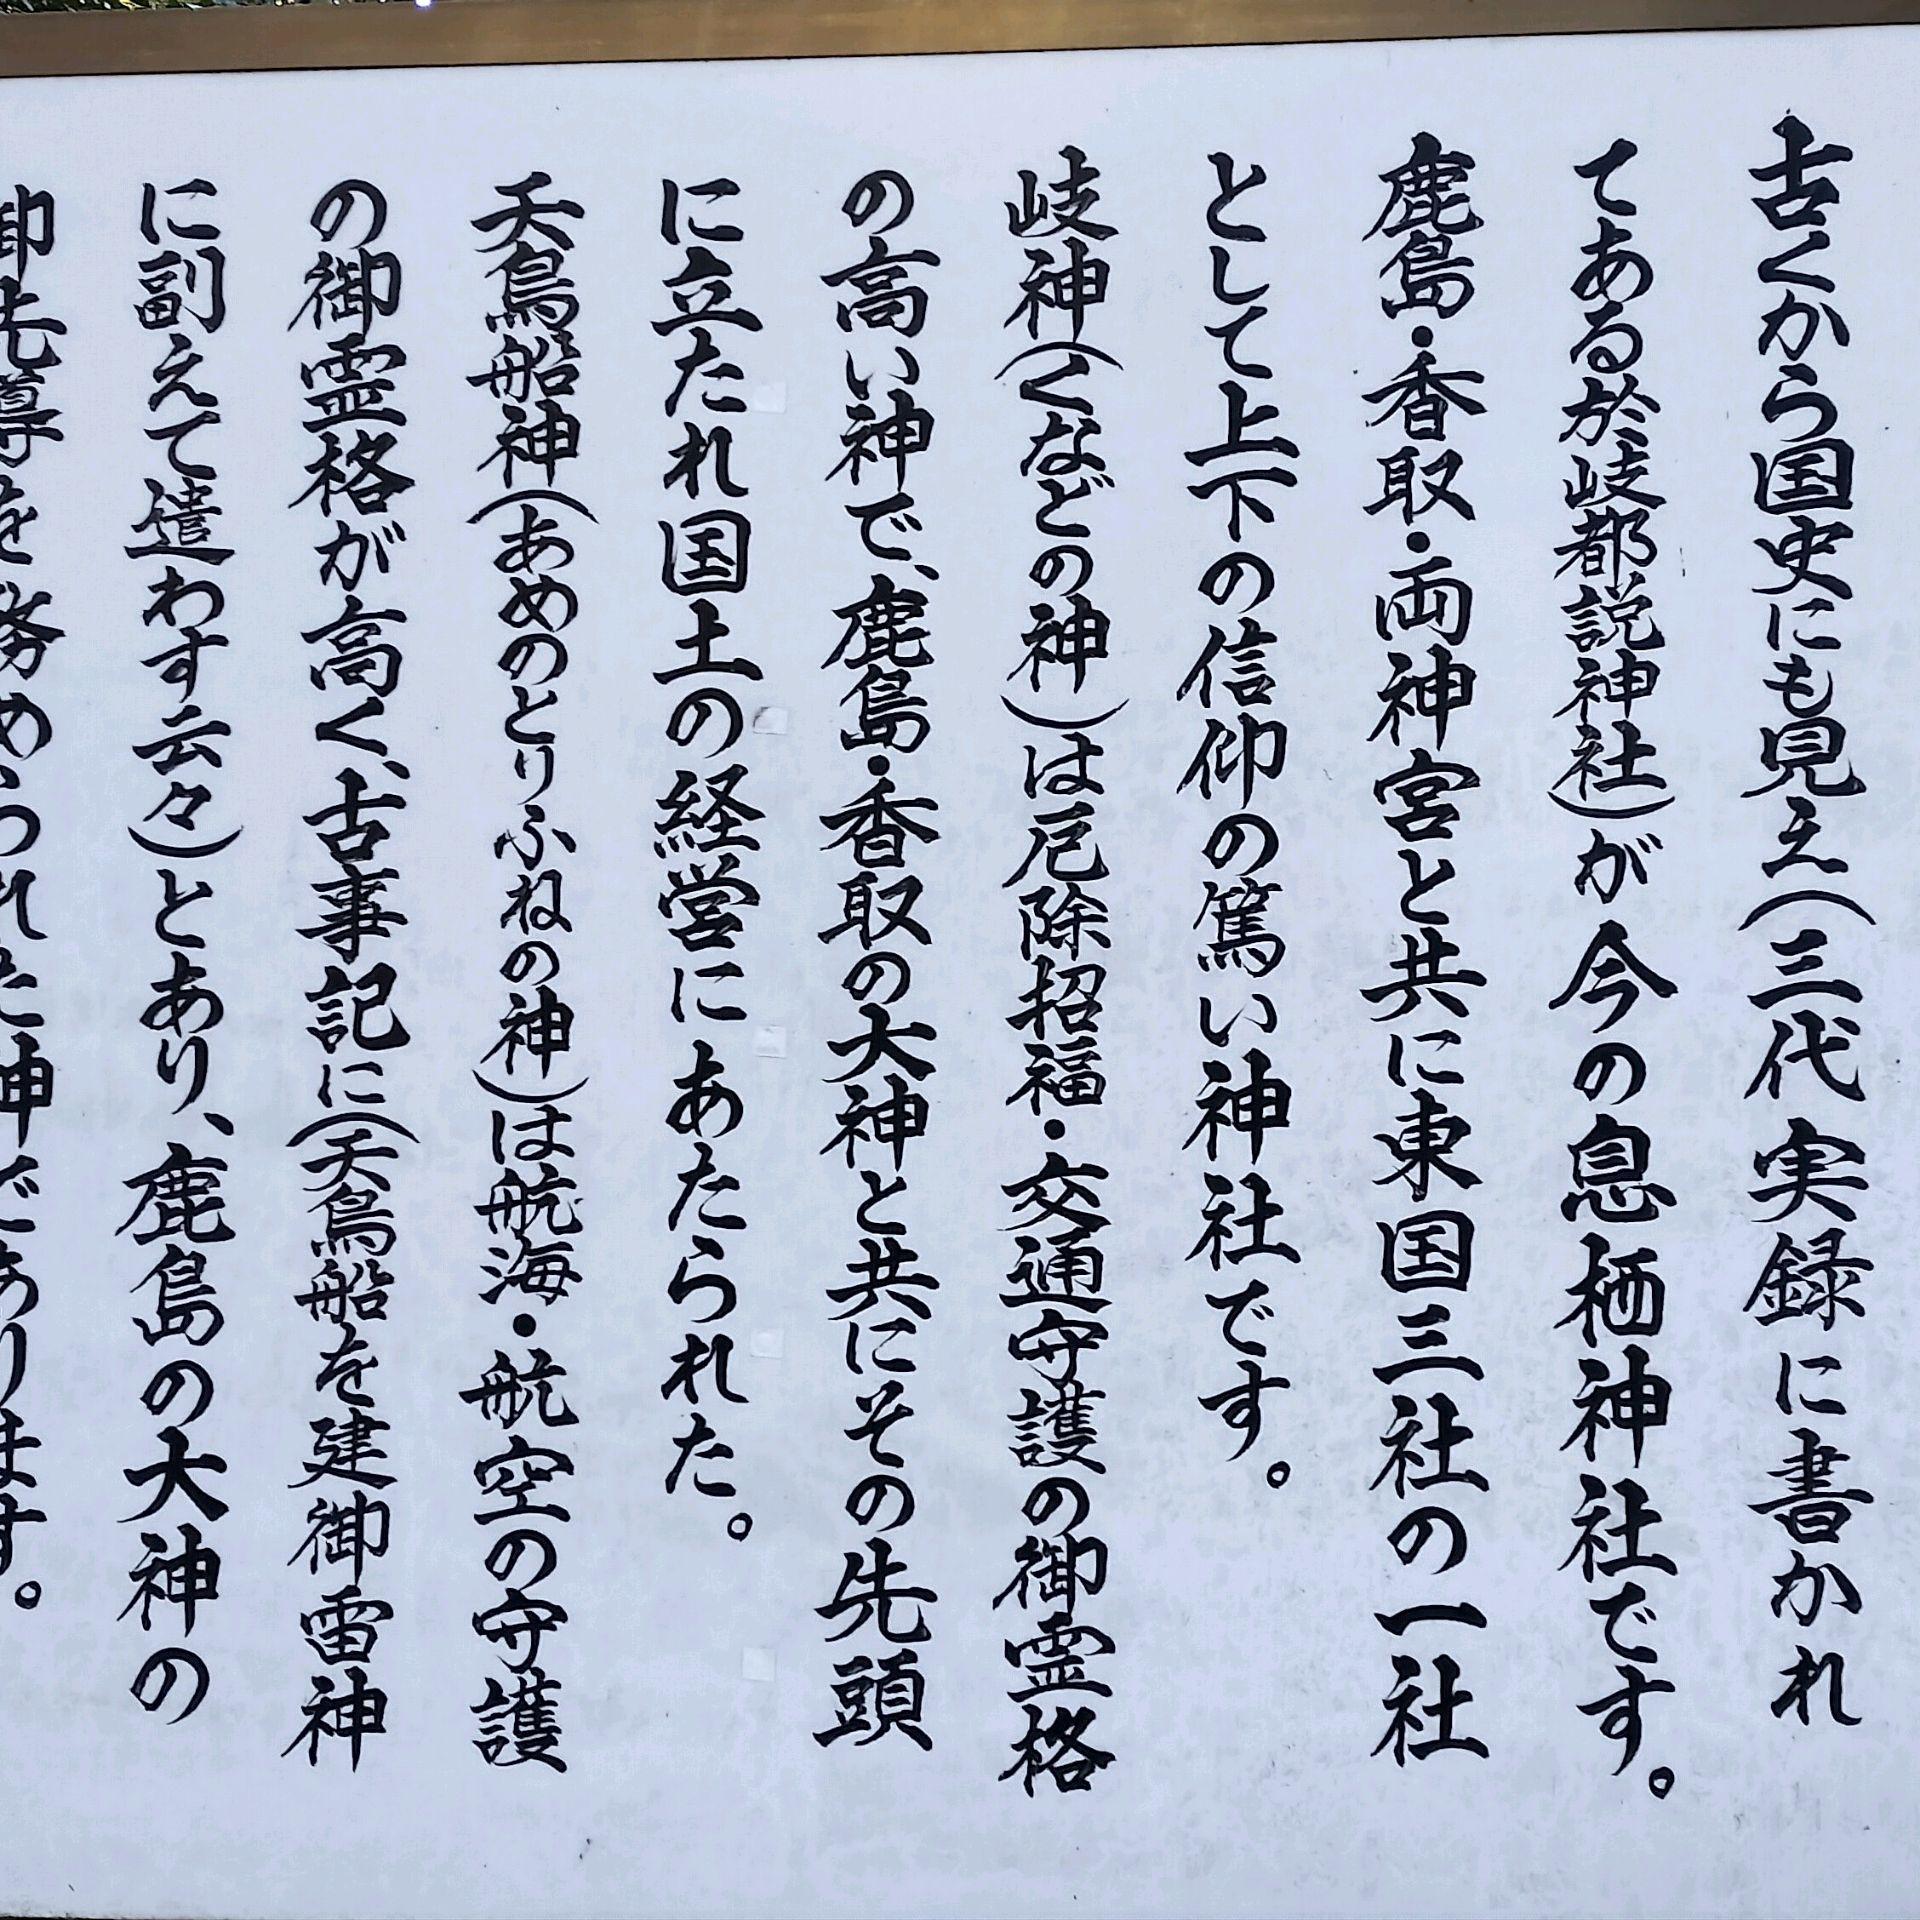 古くから国史にも見え(三代実録に書かれ
てある於岐都説神社)が今の息栖神社です。
鹿島・香取・両神宮と共に東国三社の一社
として上下の信仰の篤い神社です。
岐神(くなどの神)は厄除招福・交通守護の御霊格
の高い神で、鹿島・香取の大神と共にその先頭
に立たれ国土の経営にあたられた。
天鳥船神(あめのとりふねの神)は航海・航空の守護
の御霊格が高く、古事記に(天鳥船を建御雷神
に副えて遣わす云々)とあり、鹿島の大神の
御先導を務められた神であります。